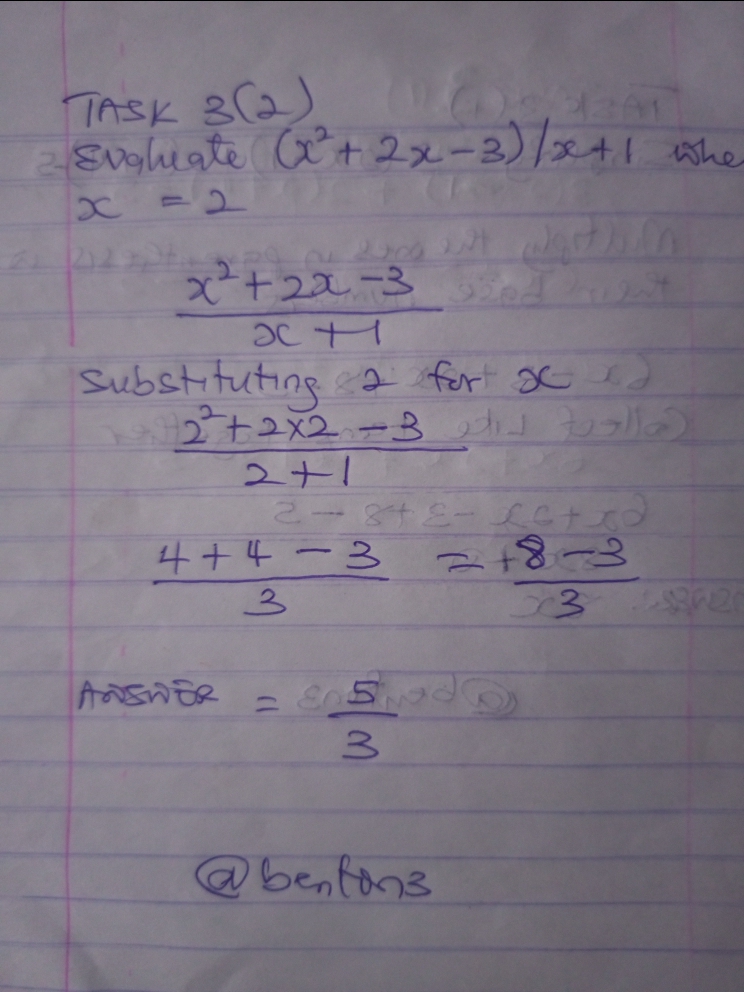 TASK 3(2)
Evaluate (x² + 2x - 3)/x+1 whe
x = 2
x² + 2x - 3
x + 1
Substituting 2 for x
2² + 2×2 - 3
2 + 1
4 + 4 - 3 = +8 - 3
3 3
ANSWER = 5
3
@benton3